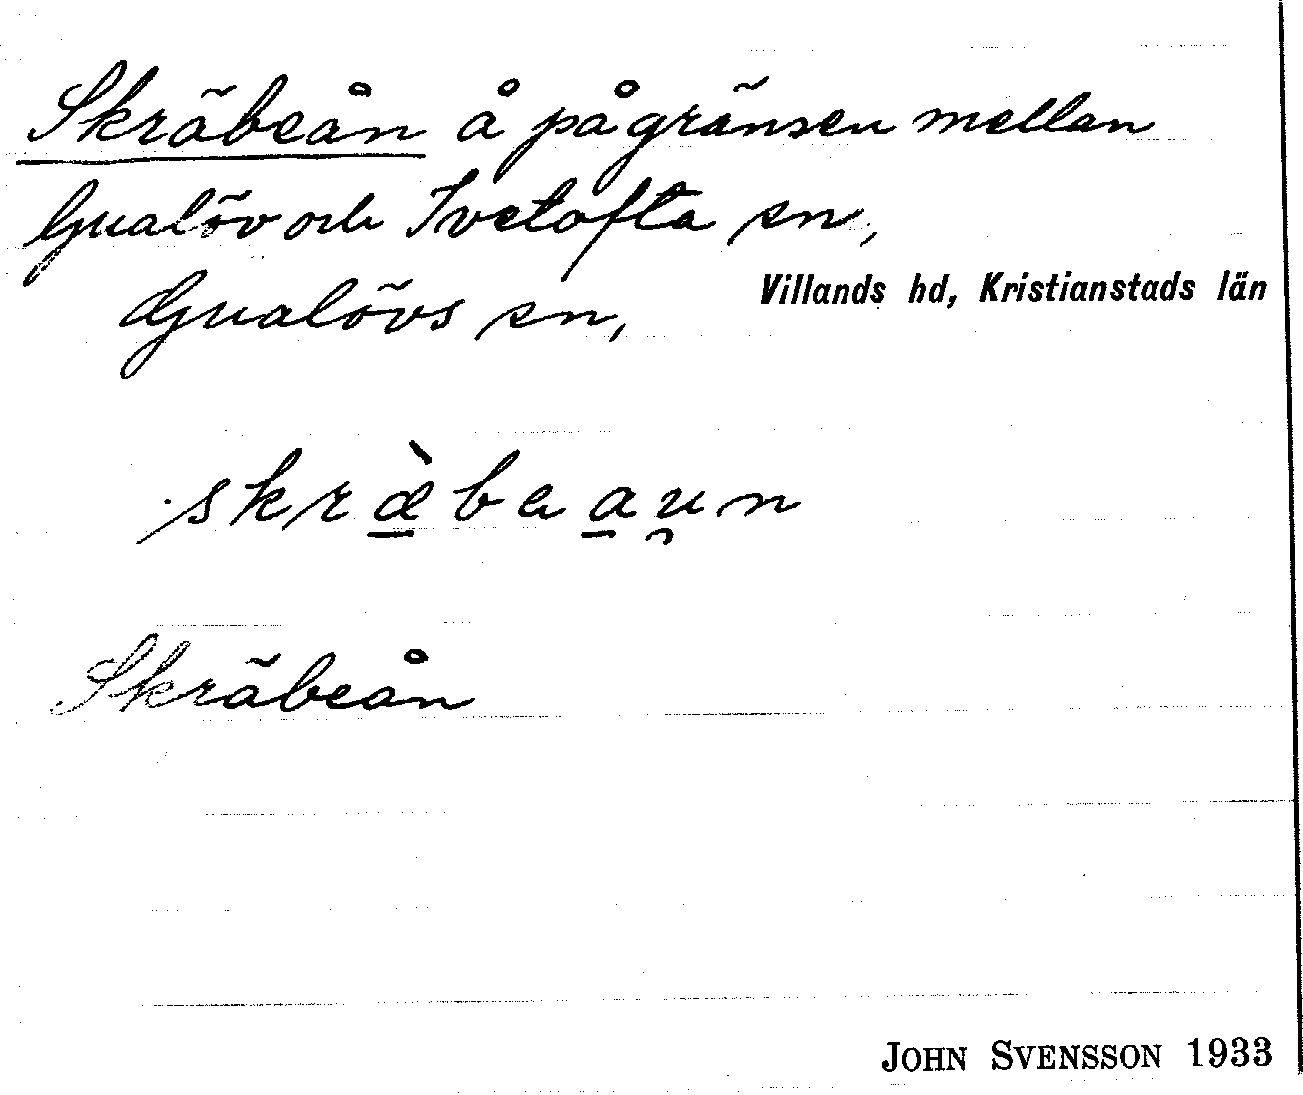 Skräbeån å på gränsen mellan
Gualöv och Ivetofta sn,
Gualövs sn, Villands hd, Kristianstads län
skræ̱̀bea̱u̯n
Skräbeån
JOHN SVENSSON 1933